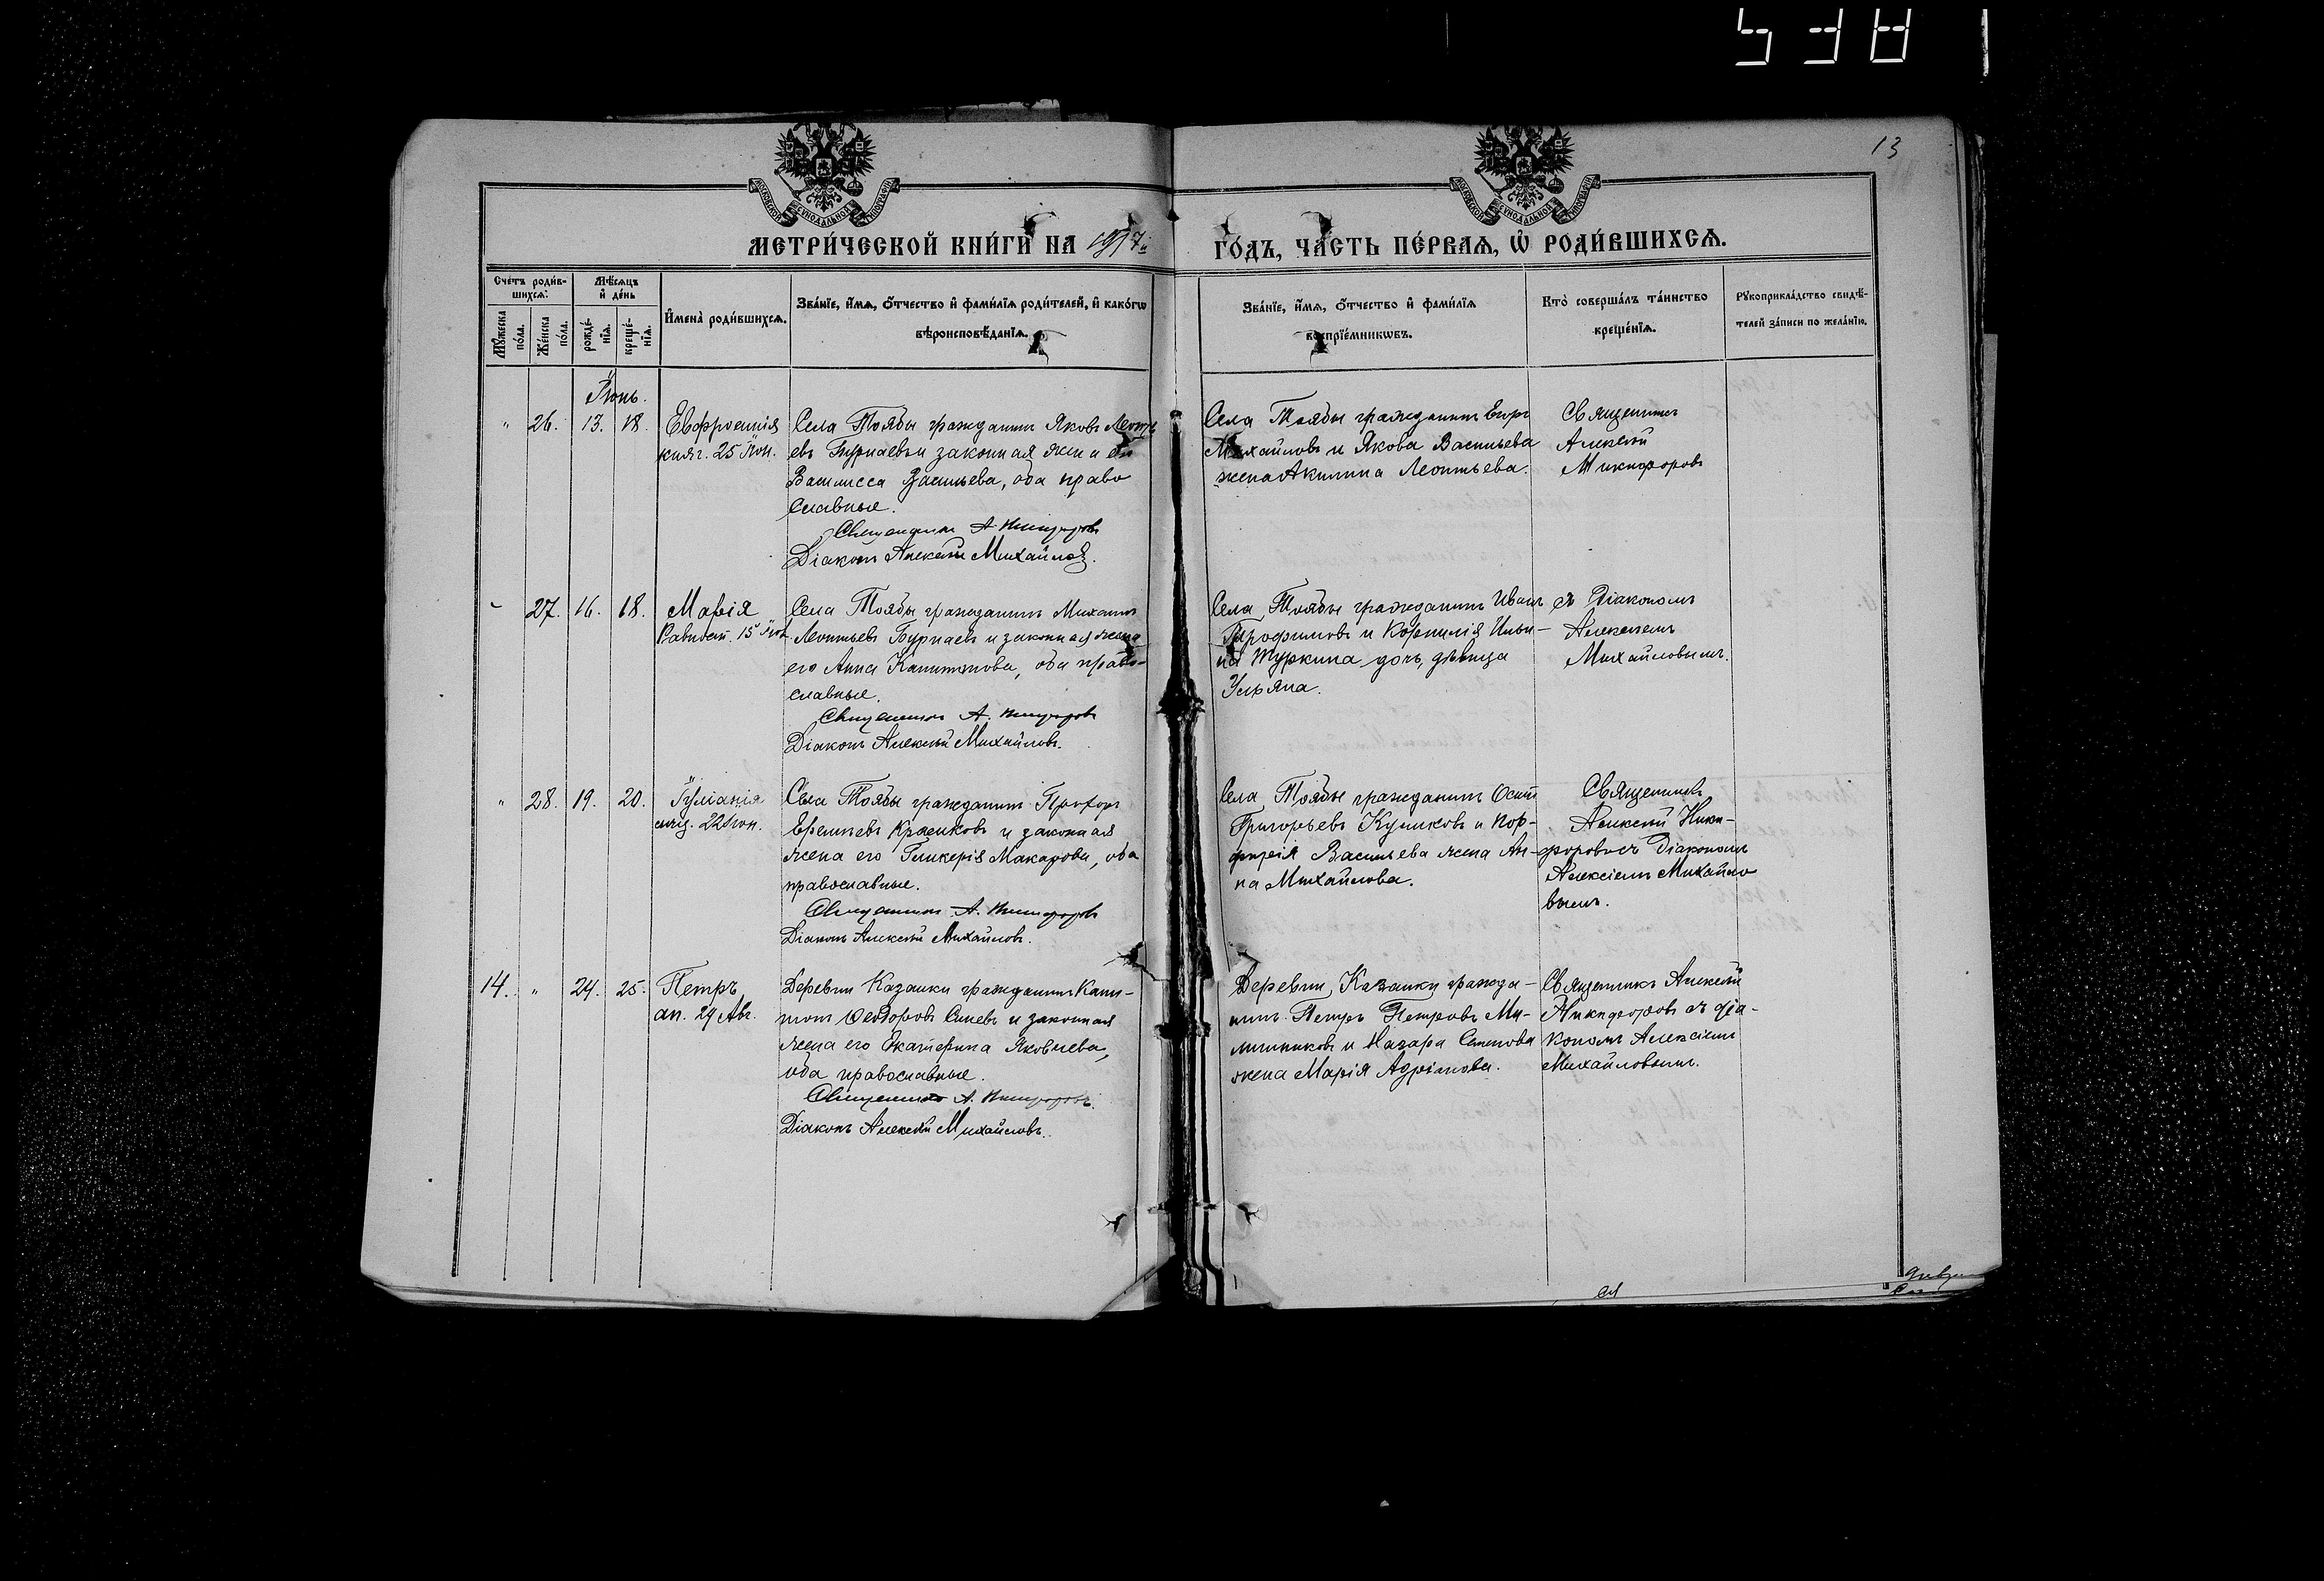 13
МЕТРИ́ЧЕСКОЙ КНИ́ГИ НА 1917 й
ГО́ДЪ, ЧА́СТЬ ПЕ́РВАЯ, Ѡ҆ РОДИ́ВШИХСЯ.
Счетъ роди́в-
шихся:
Му́жеска
по́ла.
Же́нска
по́ла.
Мѣ́сяцъ
и҆ де́нь
рожде́-
нїя.
креще́-
нїя.
И҆мена̀ роди́вшихся.
Зва́нїе, и҆́мя, ѻ҆́тчество и҆ фами́лїя роди́телей, и҆ како́гѡ
вѣроисповѣ́данїя.
Зва́нїе, и҆́мя, ѻ҆́тчество и҆ фами́лїя
воспрїе́мникѡвъ.
Кто̀ соверша́лъ та́инство
креще́нїя.
Рꙋкоприкла́дство свидѣ́-
телей за́писи по жела́нїю.
Іюнь.
" 26. 13. 18.
Евфросинія
княг. 25 Іюн.
Села Тоябы гражданинъ Яковъ Леонть
евъ Бурнаевъ и законная жена его
Василисса Васильева, оба право
славные.
Священникъ А Никифоровъ
Діаконъ Алексѣй Михайловъ.
Села Тоябы гражданинъ Егоръ
Михайловъ и Якова Васильева
жена Акилина Леонтьева.
Священникъ
Алексѣй
Никифоровъ
27. 16. 18.
Марія
Села Тоябы гражданинъ Михаилъ
Леонтьевъ Бурнаевъ и законная жена
его Анна Капитонова, оба право-
славные.
Священникъ А. Никифоровъ
Діаконъ Алексѣй Михайловъ.
Села Тоябы гражданинъ Иванъ
Трофимовъ и Корнилія Ильи-
на Туркина дочь, дѣвица
съ Діакономъ
Алексѣемъ
Михайловымъ.
" 28. 19. 20.
Іуліанія
муц. 22 Іюн.
Села Тоябы гражданинъ Прохоръ
Еремѣевъ и законная
жена его Гликерія Макарова, оба
православные.
Священникъ А. Никифоровъ
Діаконъ Алексѣй Михайловъ.
Села Тоябы гражданинъ Осипъ
Григорьевъ Куликовъ и Пор-
фирія Васильева жена Ан-
на Михайлова.
Священникъ
Алексѣй Ники-
форовъ съ Діакономъ
Алексіемъ Михайло
вымъ.
14. " 24. 25.
Петръ
ап. 29 Авг.
Деревни Казанки гражданинъ Капи-
тонъ Ѳеодоровъ Синевъ и законная
жена его Екатерина Яковлева,
оба православные.
Священникъ А. Никифоровъ.
Діаконъ Алексѣй Михайловъ.
Деревни Казанки гражда-
нинъ Петръ Петровъ Ми-
и Назара Семенова
жена Марія Адріанова.
Священникъ Алексѣй
Никифоровъ съ діа-
кономъ Алексіемъ
Михайловымъ.